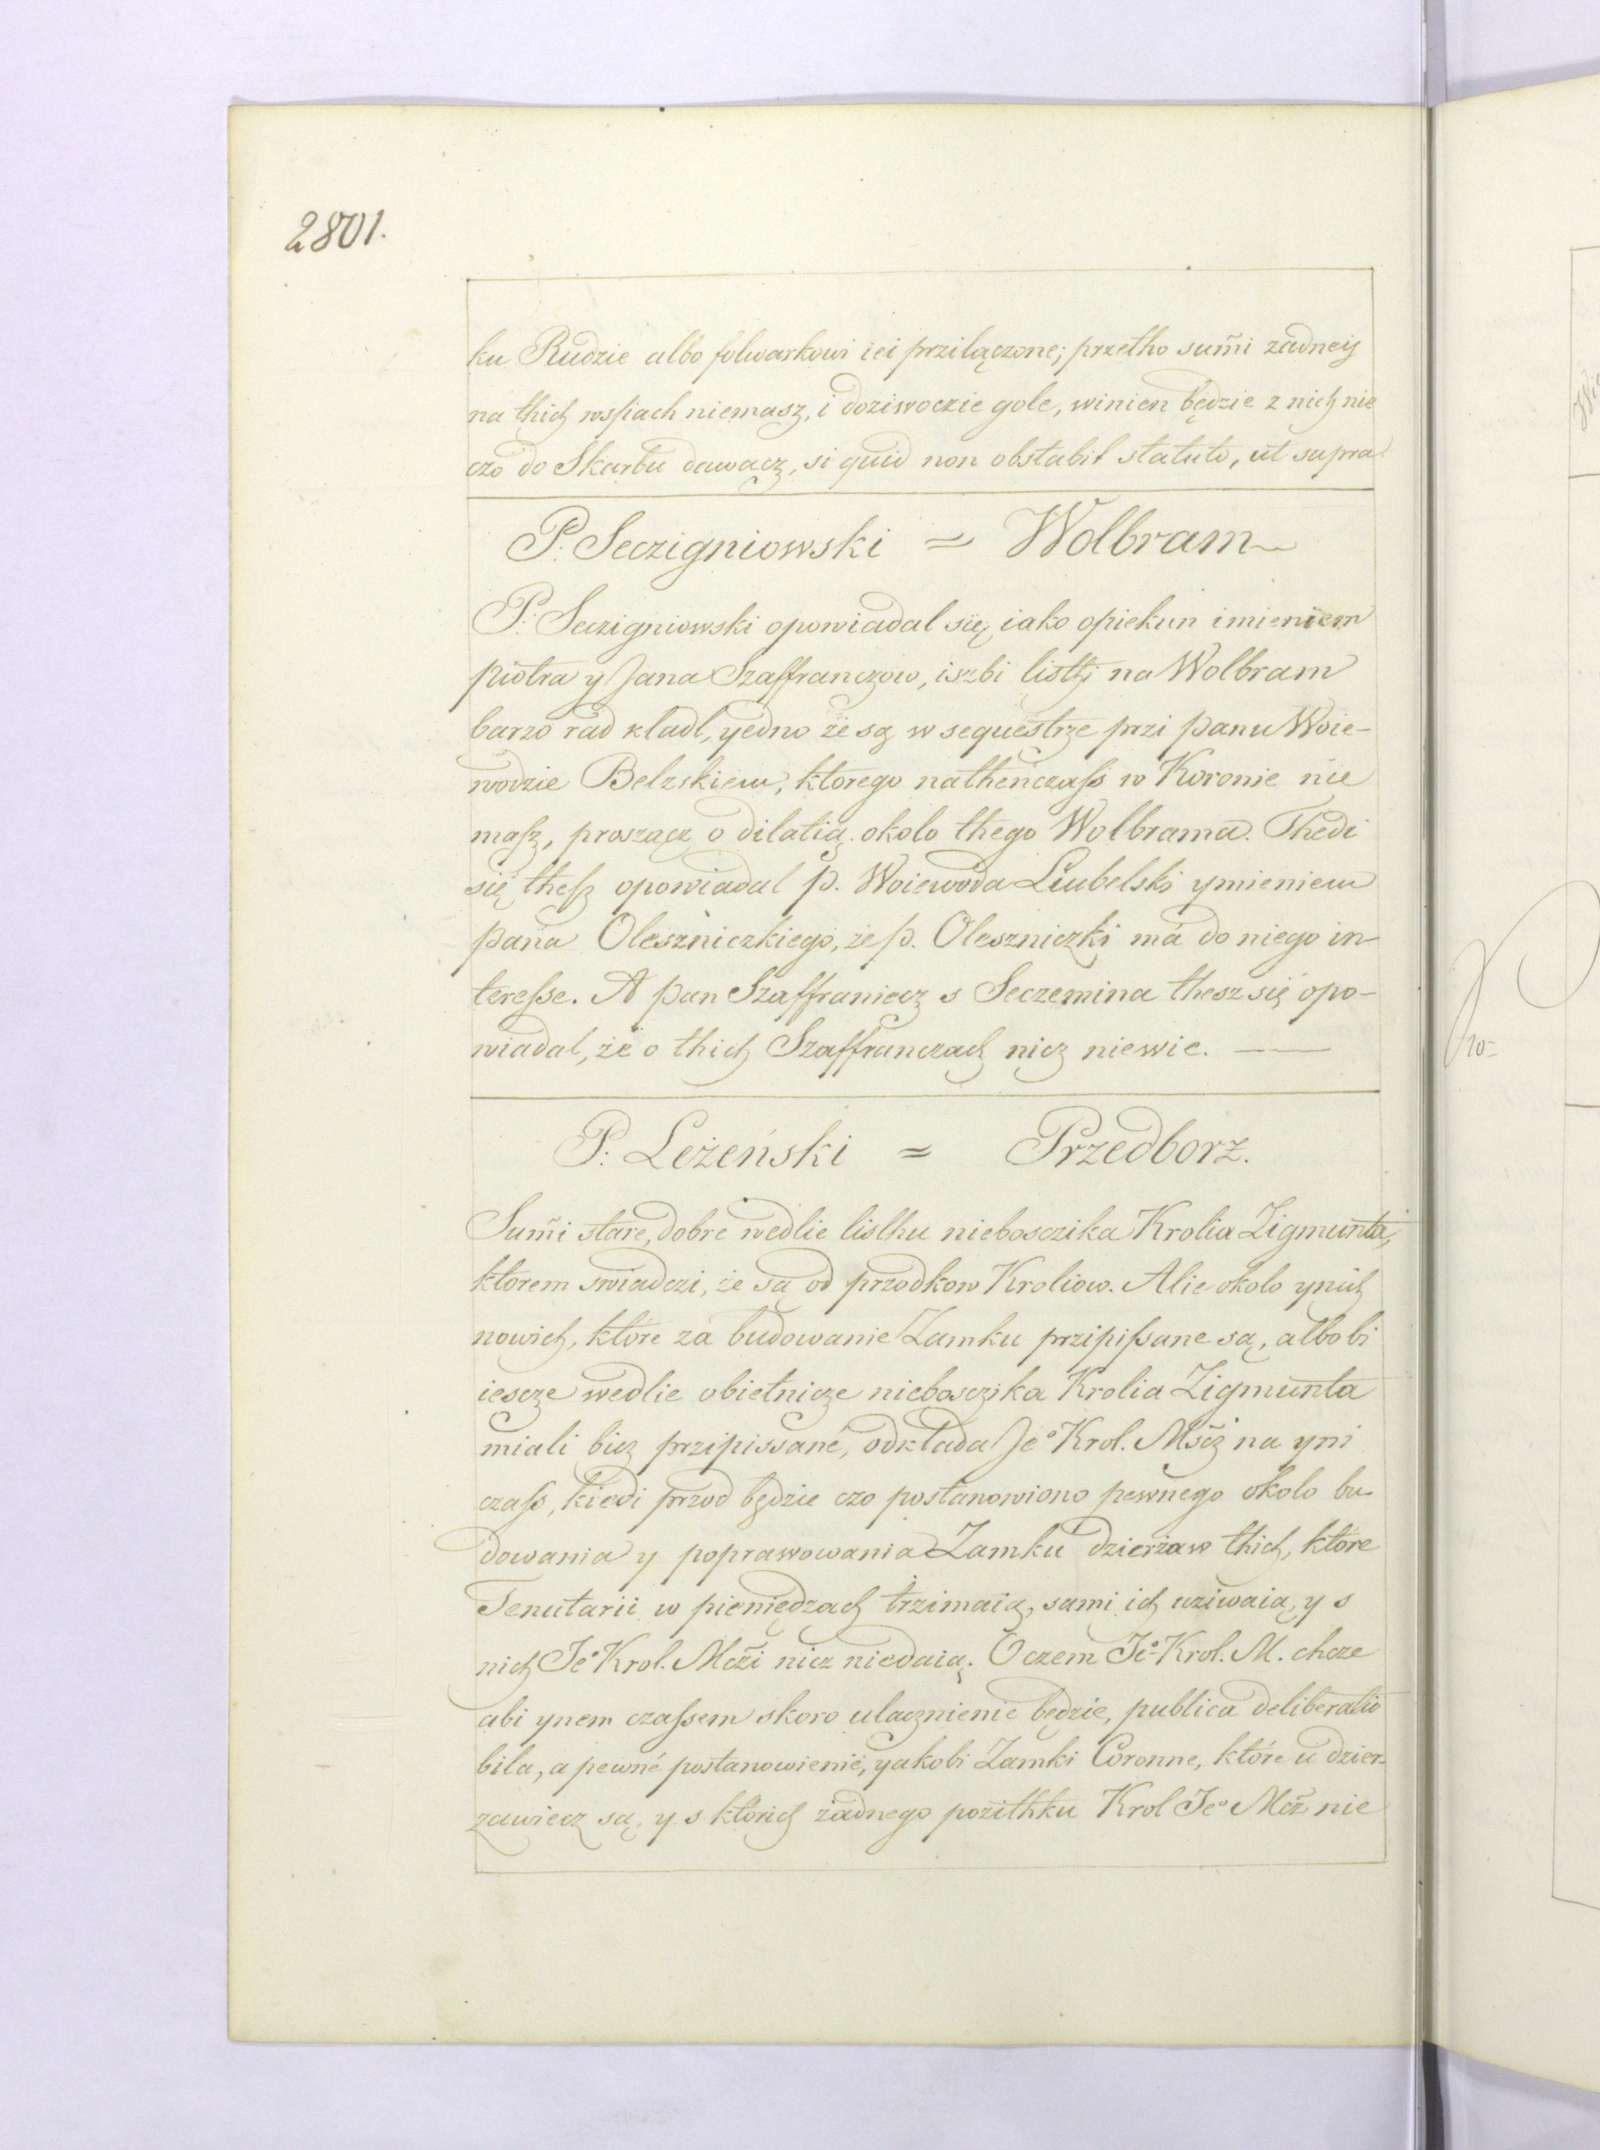 2801.
ku Rudzie albo folwarkowi iei przilączone; przetho sum̃i zadneÿ
na thich wsiach niemasz, i doziwoczie gole, winien będzie z nich nie
czo do Skarbu dawacz, si quid non obstabit statuto, ut supra
P. Seczigniowski = Wolbram
P. Seczigniowski opowiadal się iako opiekun imieniem
Piotra y Jana Szaffranczow, iszbi listhj na Wolbram
barzo rad kladl, yedno że są w sequestrze przi Panu Woie-
wodzie Belzskiem, ktorego nathenczass w Koronie nie
masz, prosząc o dilatią około thego Wolbrama. Thedi
się thesz opowiadal P. Woiewoda Liubelski ymieniem
Pana Olesznickiego, że P. Oleszniczki má do niego in-
teresse. A Pan Szaffraniecz s Seczemina thesz się opo-
wiadal, że o thich Szaffranczach nicz niewie.
P. Leżeński = Przedborz.
Sum̃i stare, dobre wedlie listhu nieboszczika Krolia Zigmunta,
ktorem swiadczi, że są od przodkow Kroliow. Alie okolo ynich
nowich, ktore za budowanie Zamku przipissane są, albo bi
iescze wedlie obietnicze nieboszczika Krolia Zigmunta
miali bicz przipissané, odkłada Jeº Krol. Mść na yni
czass, kiedi przod będzie czo postanowiono pewnego około bu-
dowania y poprawowania Zamku dzierżaw thich, które
Tenutarii w pieniędzach trzimaią, sami ich uziwaią, y s
nich Jeº Krol. Mczi nicz niedaią. O czem Jeº Krol. M. chcze
abi ynem czassem skoro ulacznienié będzie, publica deliberatio
bila, a pewné postanowienié, yakobi Zamki Coronne, które u dzier-
zawiecz są, y s ktorich żadnego pozithku Krol Jeº Mcz nie